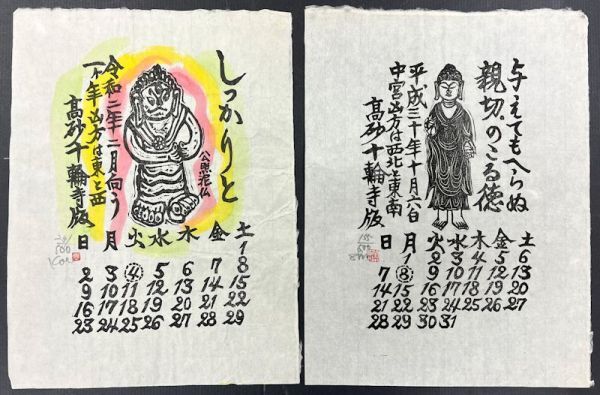 しっかりと
公照泥仏
令和二年二月向う
一ヶ年凶方は東と西
高砂十輪寺版
日 月 火 水 木 金 土
1
2 3 4 5 6 7 8
9 10 11 12 13 14 15
16 17 18 19 20 21 22
23 24 25 26 27 28 29
与えてもへらぬ
親切のこる徳
平成三十年十月六白
中宮凶方は西北と東南
高砂十輪寺版
日 月 火 水 木 金 土
1 2 3 4 5 6
7 8 9 10 11 12 13
14 15 16 17 18 19 20
21 22 23 24 25 26 27
28 29 30 31